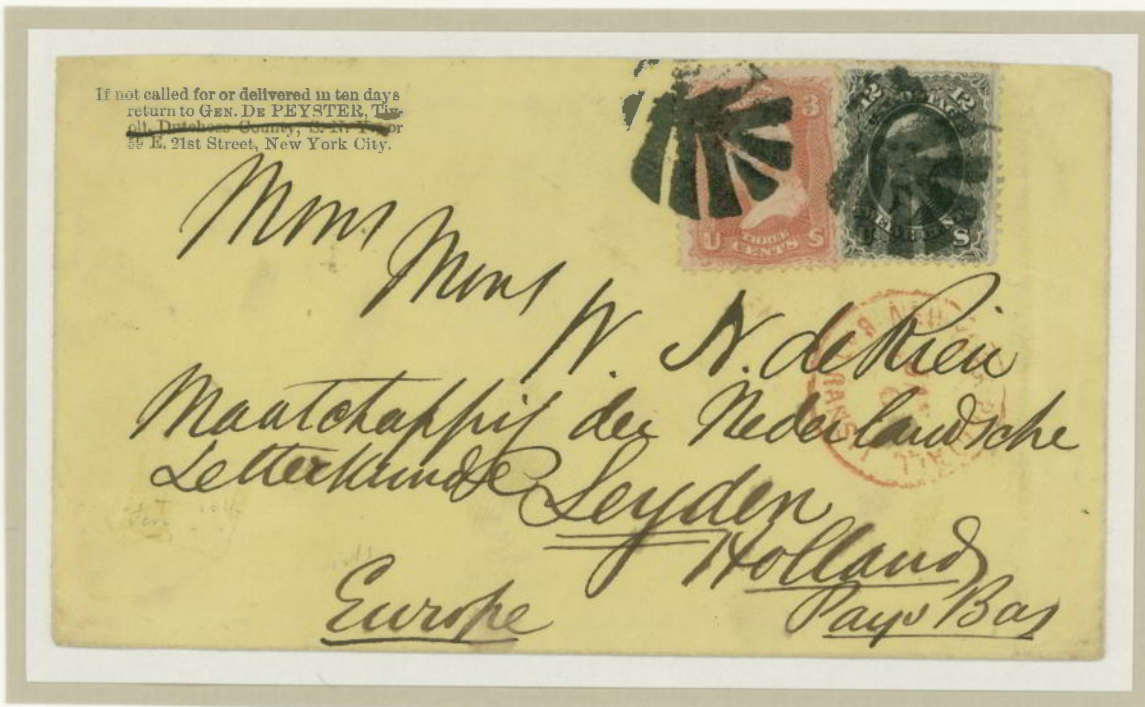 If not called for or delivered in ten days
return to GEN. DE PEYSTER, Tiv-
oli, Dutchess County, S. N. Y. or
59 E. 21st Street, New York City.
3
U THREE CENTS S
12 12
U S
Mons
Mons W. N. de Rieu
Maatchappij der Nederlandsche
Letterkunde Leyden
Holland
Europe Pays Bas
NEW
TRANSIT